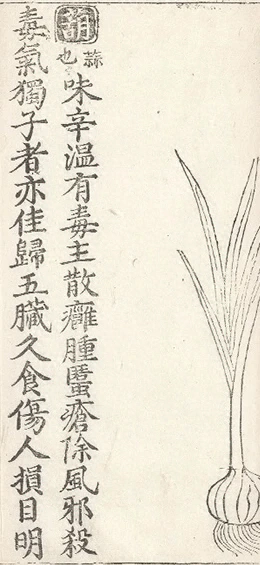 葫蒜也味辛温有毒主散癰腫䘌瘡除風邪殺
毒氣獨子者亦佳歸五臟久食傷人損目明